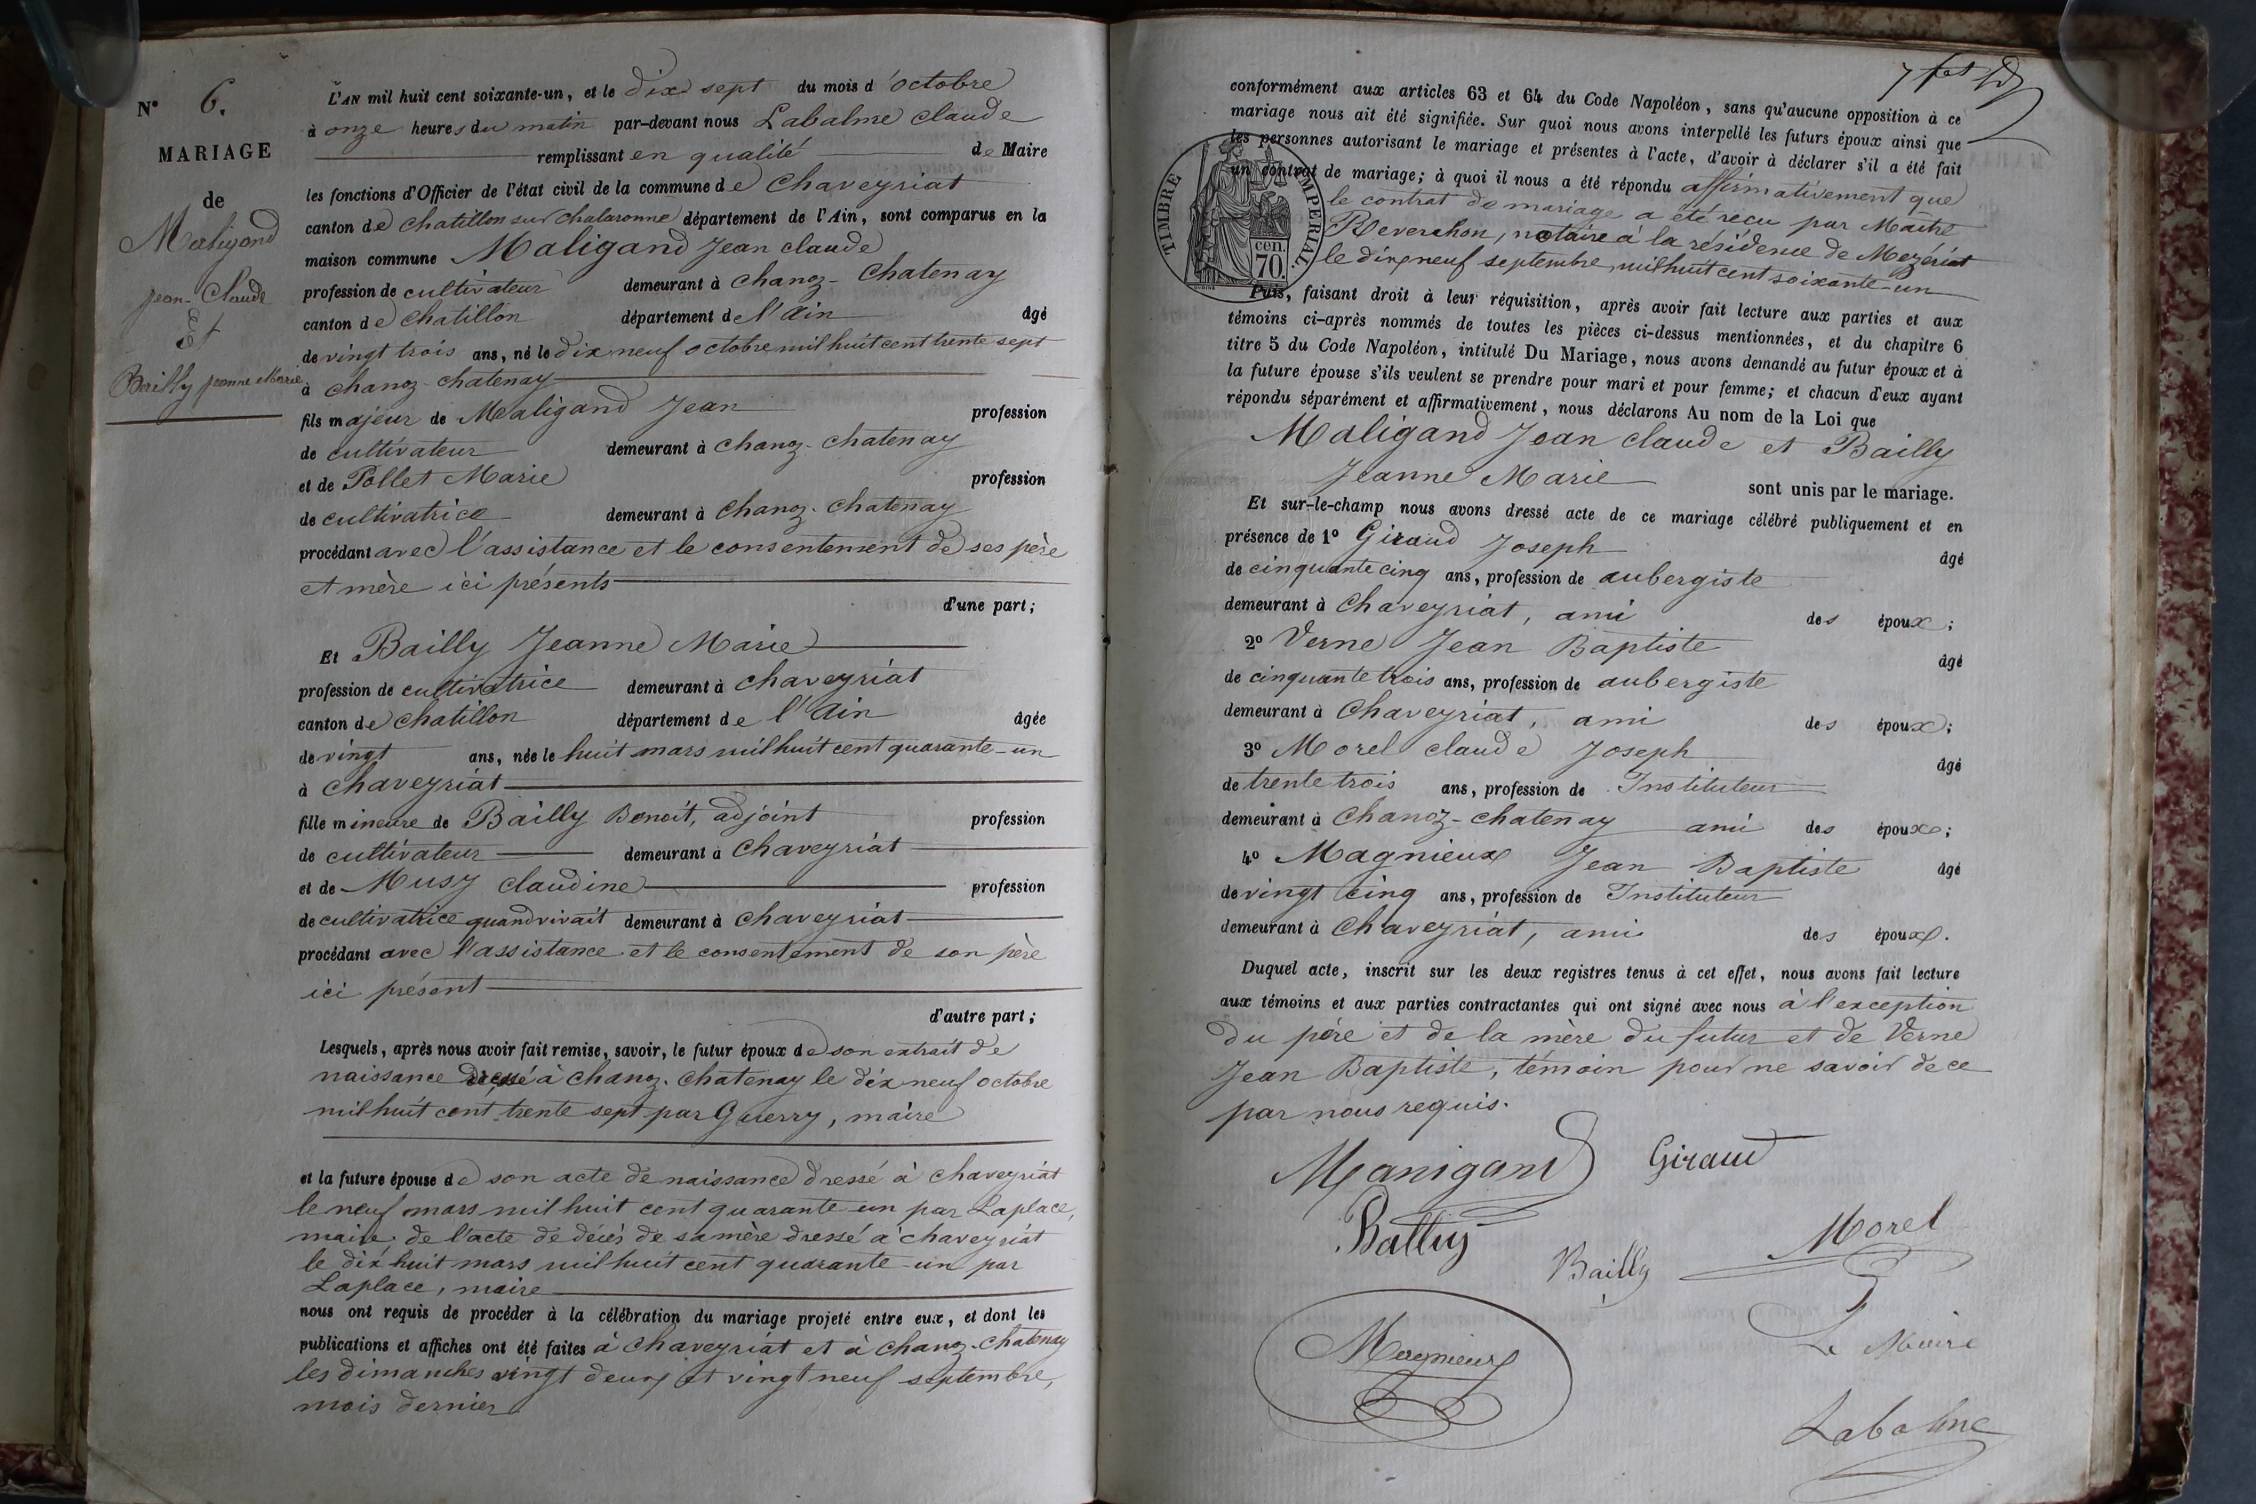 N° 6.
MARIAGE
de
Maligand
Jean-Claude
Et
Bailly Jeanne Marie
L'AN mil huit cent soixante-un, et le dix sept du mois d'octobre
à onze heures du matin par-devant nous Labalme claude
remplissant en qualité de Maire
les fonctions d'Officier de l'état civil de la commune de Chaveyriat
canton de chatillon sur chalaronne département de l'Ain, sont comparus en la
maison commune Maligand Jean claude
profession de cultivateur demeurant à chanoz-Chatenay
canton de chatillon département de l'ain âgé
de vingt trois ans, né le dix neuf octobre mil huit cent trente sept
à chanoz-chatenay
fils majeur de Maligand Jean profession
de cultivateur demeurant à chanoz-chatenay
et de Pollet Marie profession
de cultivatrice demeurant à Chanoz-chatenay
procédant avec l'assistance et le consentement de ses père
et mère ici présents
d'une part;
Et Bailly Jeanne Marie
profession de cultivatrice demeurant à chaveyriat
canton de chatillon département de l'ain âgée
de vingt ans, née le huit mars mil huit cent quarante-un
à chaveyriat
fille mineure de Bailly Benoit, adjoint profession
de cultivateur demeurant à chaveyriat
et de Musy claudine profession
de cultivatrice quand vivait demeurant à chaveyriat
procédant avec l'assistance et le consentement de son père
ici présent
d'autre part;
Lesquels, après nous avoir fait remise, savoir, le futur époux de son extrait de
naissance dressé à chanoz-chatenay le dix neuf octobre
mil huit cent trente sept par Guerry, maire
et la future épouse de son acte de naissance dressé à chaveyriat
le neuf mars mil huit cent quarante un par Laplace,
maire. de l'acte de décès de sa mère dressé à chaveyriat
le dix huit mars mil huit cent quarante-un par
Laplace, maire
nous ont requis de procéder à la célébration du mariage projeté entre eux, et dont les
publications et affiches ont été faites à chaveyriat et à chanoz-chatenay
les dimanches vingt deux et vingt neuf septembre,
mois dernier
TIMBRE IMPERIAL.
70 cen.
conformément aux articles 63 et 64 du Code Napoléon, sans qu'aucune opposition à ce
mariage nous ait été signifiée. Sur quoi nous avons interpellé les futurs époux ainsi que
les personnes autorisant le mariage et présentes à l'acte, d'avoir à déclarer s'il a été fait
un contrat de mariage; à quoi il nous a été répondu affirmativement que
le contrat de mariage a été reçu par Maitre
Reverchon, notaire à la résidence de Mezériat
le dix neuf septembre mil huit cent soixante-un
Puis, faisant droit à leur réquisition, après avoir fait lecture aux parties et aux
témoins ci-après nommés de toutes les pièces ci-dessus mentionnées, et du chapitre 6
titre 5 du Code Napoléon, intitulé Du Mariage, nous avons demandé au futur époux et à
la future épouse s'ils veulent se prendre pour mari et pour femme; et chacun d'eux ayant
répondu séparément et affirmativement, nous déclarons Au nom de la Loi que
Maligand Jean claude et Bailly
Jeanne Marie sont unis par le mariage.
Et sur-le-champ nous avons dressé acte de ce mariage célébré publiquement et en
présence de 1° Giraud Joseph âgé
de cinquante cinq ans, profession de aubergiste
demeurant à Chaveyriat, ami des époux;
2° Verne Jean Baptiste âgé
de cinquante trois ans, profession de aubergiste
demeurant à Chaveyriat, ami des époux;
3° Morel claude Joseph âgé
de trente trois ans, profession de Instituteur
demeurant à Chanoz-chatenay ami des époux;
4° Magnieux Jean Baptiste âgé
de vingt cinq ans, profession de Instituteur
demeurant à chaveyriat, ami des époux.
Duquel acte, inscrit sur les deux registres tenus à cet effet, nous avons fait lecture
aux témoins et aux parties contractantes qui ont signé avec nous à l'exception
du père et de la mère du futur et de Verne
Jean Baptiste, témoin pour ne savoir de ce
par nous requis.
Manigand Giraud
Bailly
Bailly Morel
Magnieux
Le Maire
Labalme